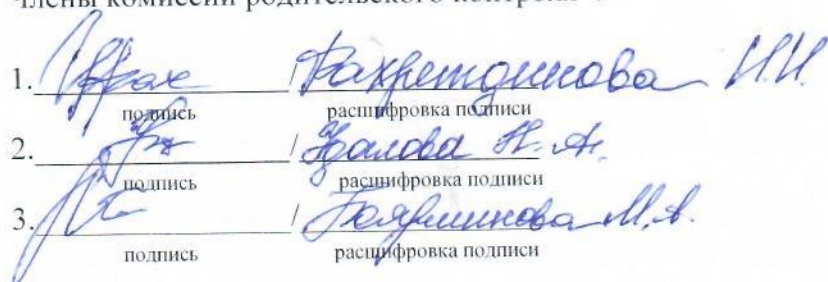 Члены комиссии родительского контроля
1. / Фахретдинова И.И.
подпись расшифровка подписи
2. / Н.А.
подпись расшифровка подписи
3. / М.А.
подпись расшифровка подписи